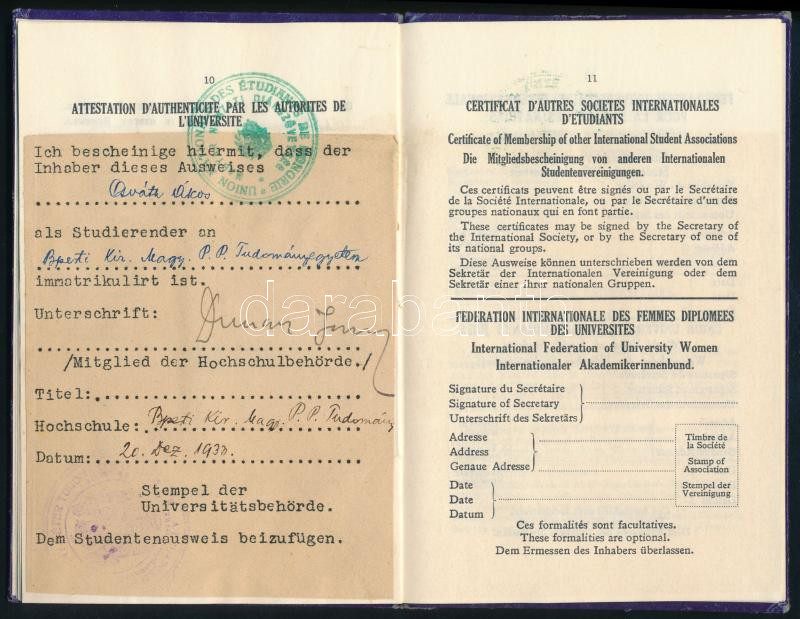 10
ATTESTATION D'AUTHENTICITE PAR LES AUTORITES DE
L'UNIVERSITE
Ich bescheinige hiermit, dass der
Inhaber dieses Ausweises
Ákos
als Studierender an
Bpesti Kir. Magy. P. P. Tudományegyetem
immatrikulirt ist.
Unterschrift:
/Mitglied der Hochschulbehörde./
Titel:
Hochschule: Bpesti Kir. Magy. P. P. Tudomány
Datum: 20. Dez. 1930.
Stempel der
Universitätsbehörde.
Dem Studentenausweis beizufügen.
DES ÉTUDIANTS DE
UNION
11
CERTIFICAT D'AUTRES SOCIETES INTERNATIONALES
D'ETUDIANTS
Certificate of Membership of other International Student Associations
Die Mitgliedsbescheinigung von anderen Internationalen
Studentenvereinigungen.
Ces certificats peuvent être signés ou par le Secrétaire
de la Société Internationale, ou par le Secrétaire d'un des
groupes nationaux qui en font partie.
These certificates may be signed by the Secretary of
the International Society, or by the Secretary of one of
its national groups.
Diese Ausweise können unterschrieben werden von dem
Sekretär der Internationalen Vereinigung oder dem
Sekretär einer ihrer nationalen Gruppen.
FEDERATION INTERNATIONALE DES FEMMES DIPLOMEES
DES UNIVERSITES
International Federation of University Women
Internationaler Akademikerinnenbund.
Signature du Secrétaire
Signature of Secretary
Unterschrift des Sekretärs
Adresse
Address
Genaue Adresse
Date
Date
Datum
Timbre de
la Société
Stamp of
Association
Stempel der
Vereinigung
Ces formalités sont facultatives.
These formalities are optional.
Dem Ermessen des Inhabers überlassen.
darabanth